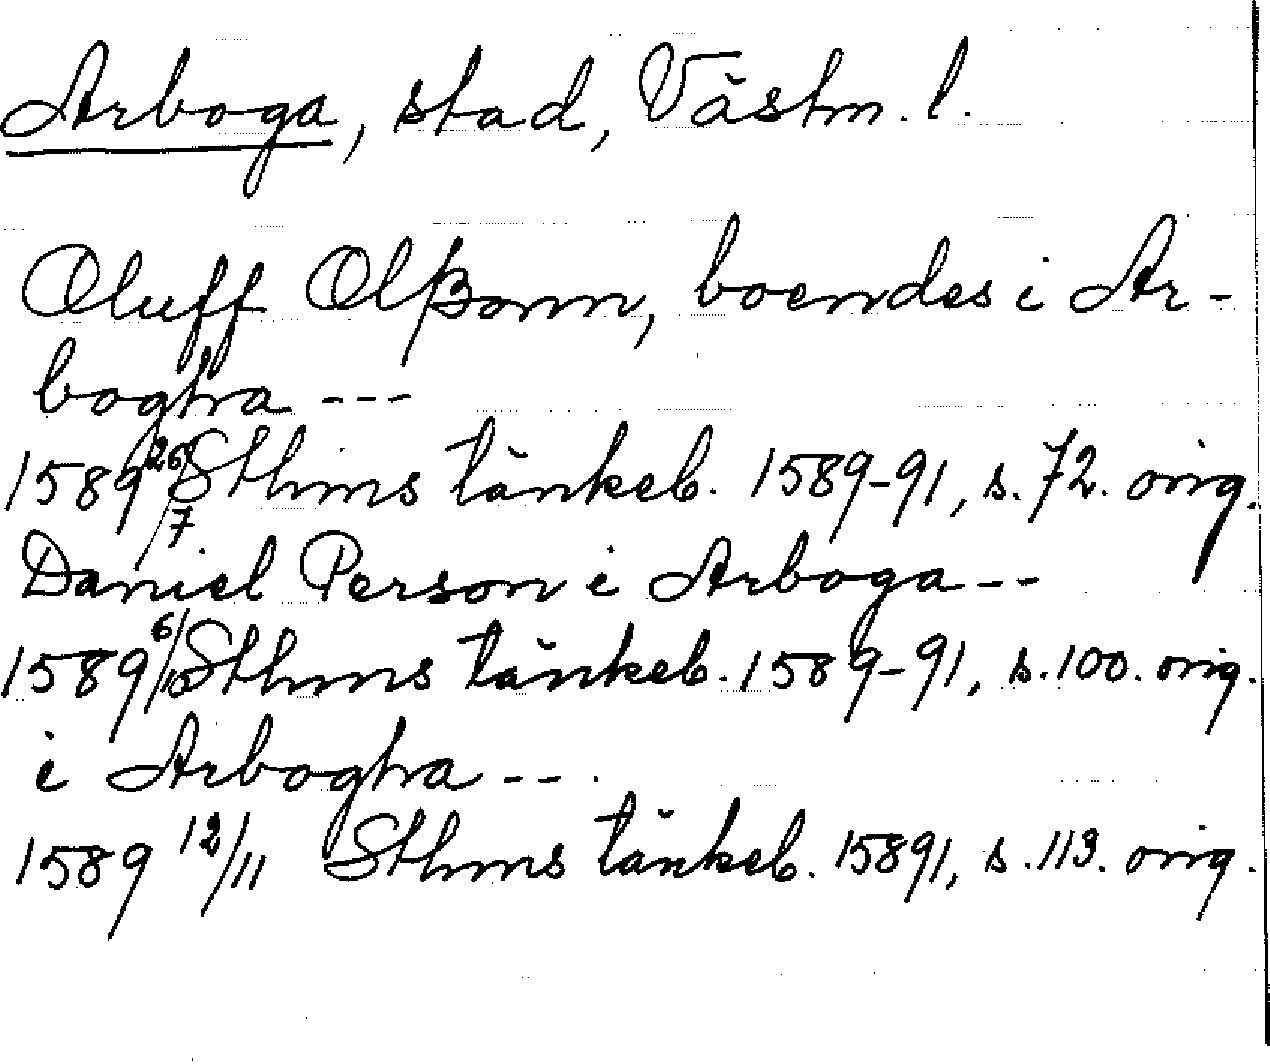 Arboga, stad, Västm. l.
Oluff Olßonn, boendes i Ar-
boghra ---
1589 26/7 Sthms tänkeb. 1589-91, s. 72. orig.
Daniel Person i Arboga --
1589 6/10 Sthms tänkeb. 1589-91, s. 100. orig.
i Arboghra --.
1589 12/11 Sthms tänkeb. 15891, s. 113. orig.